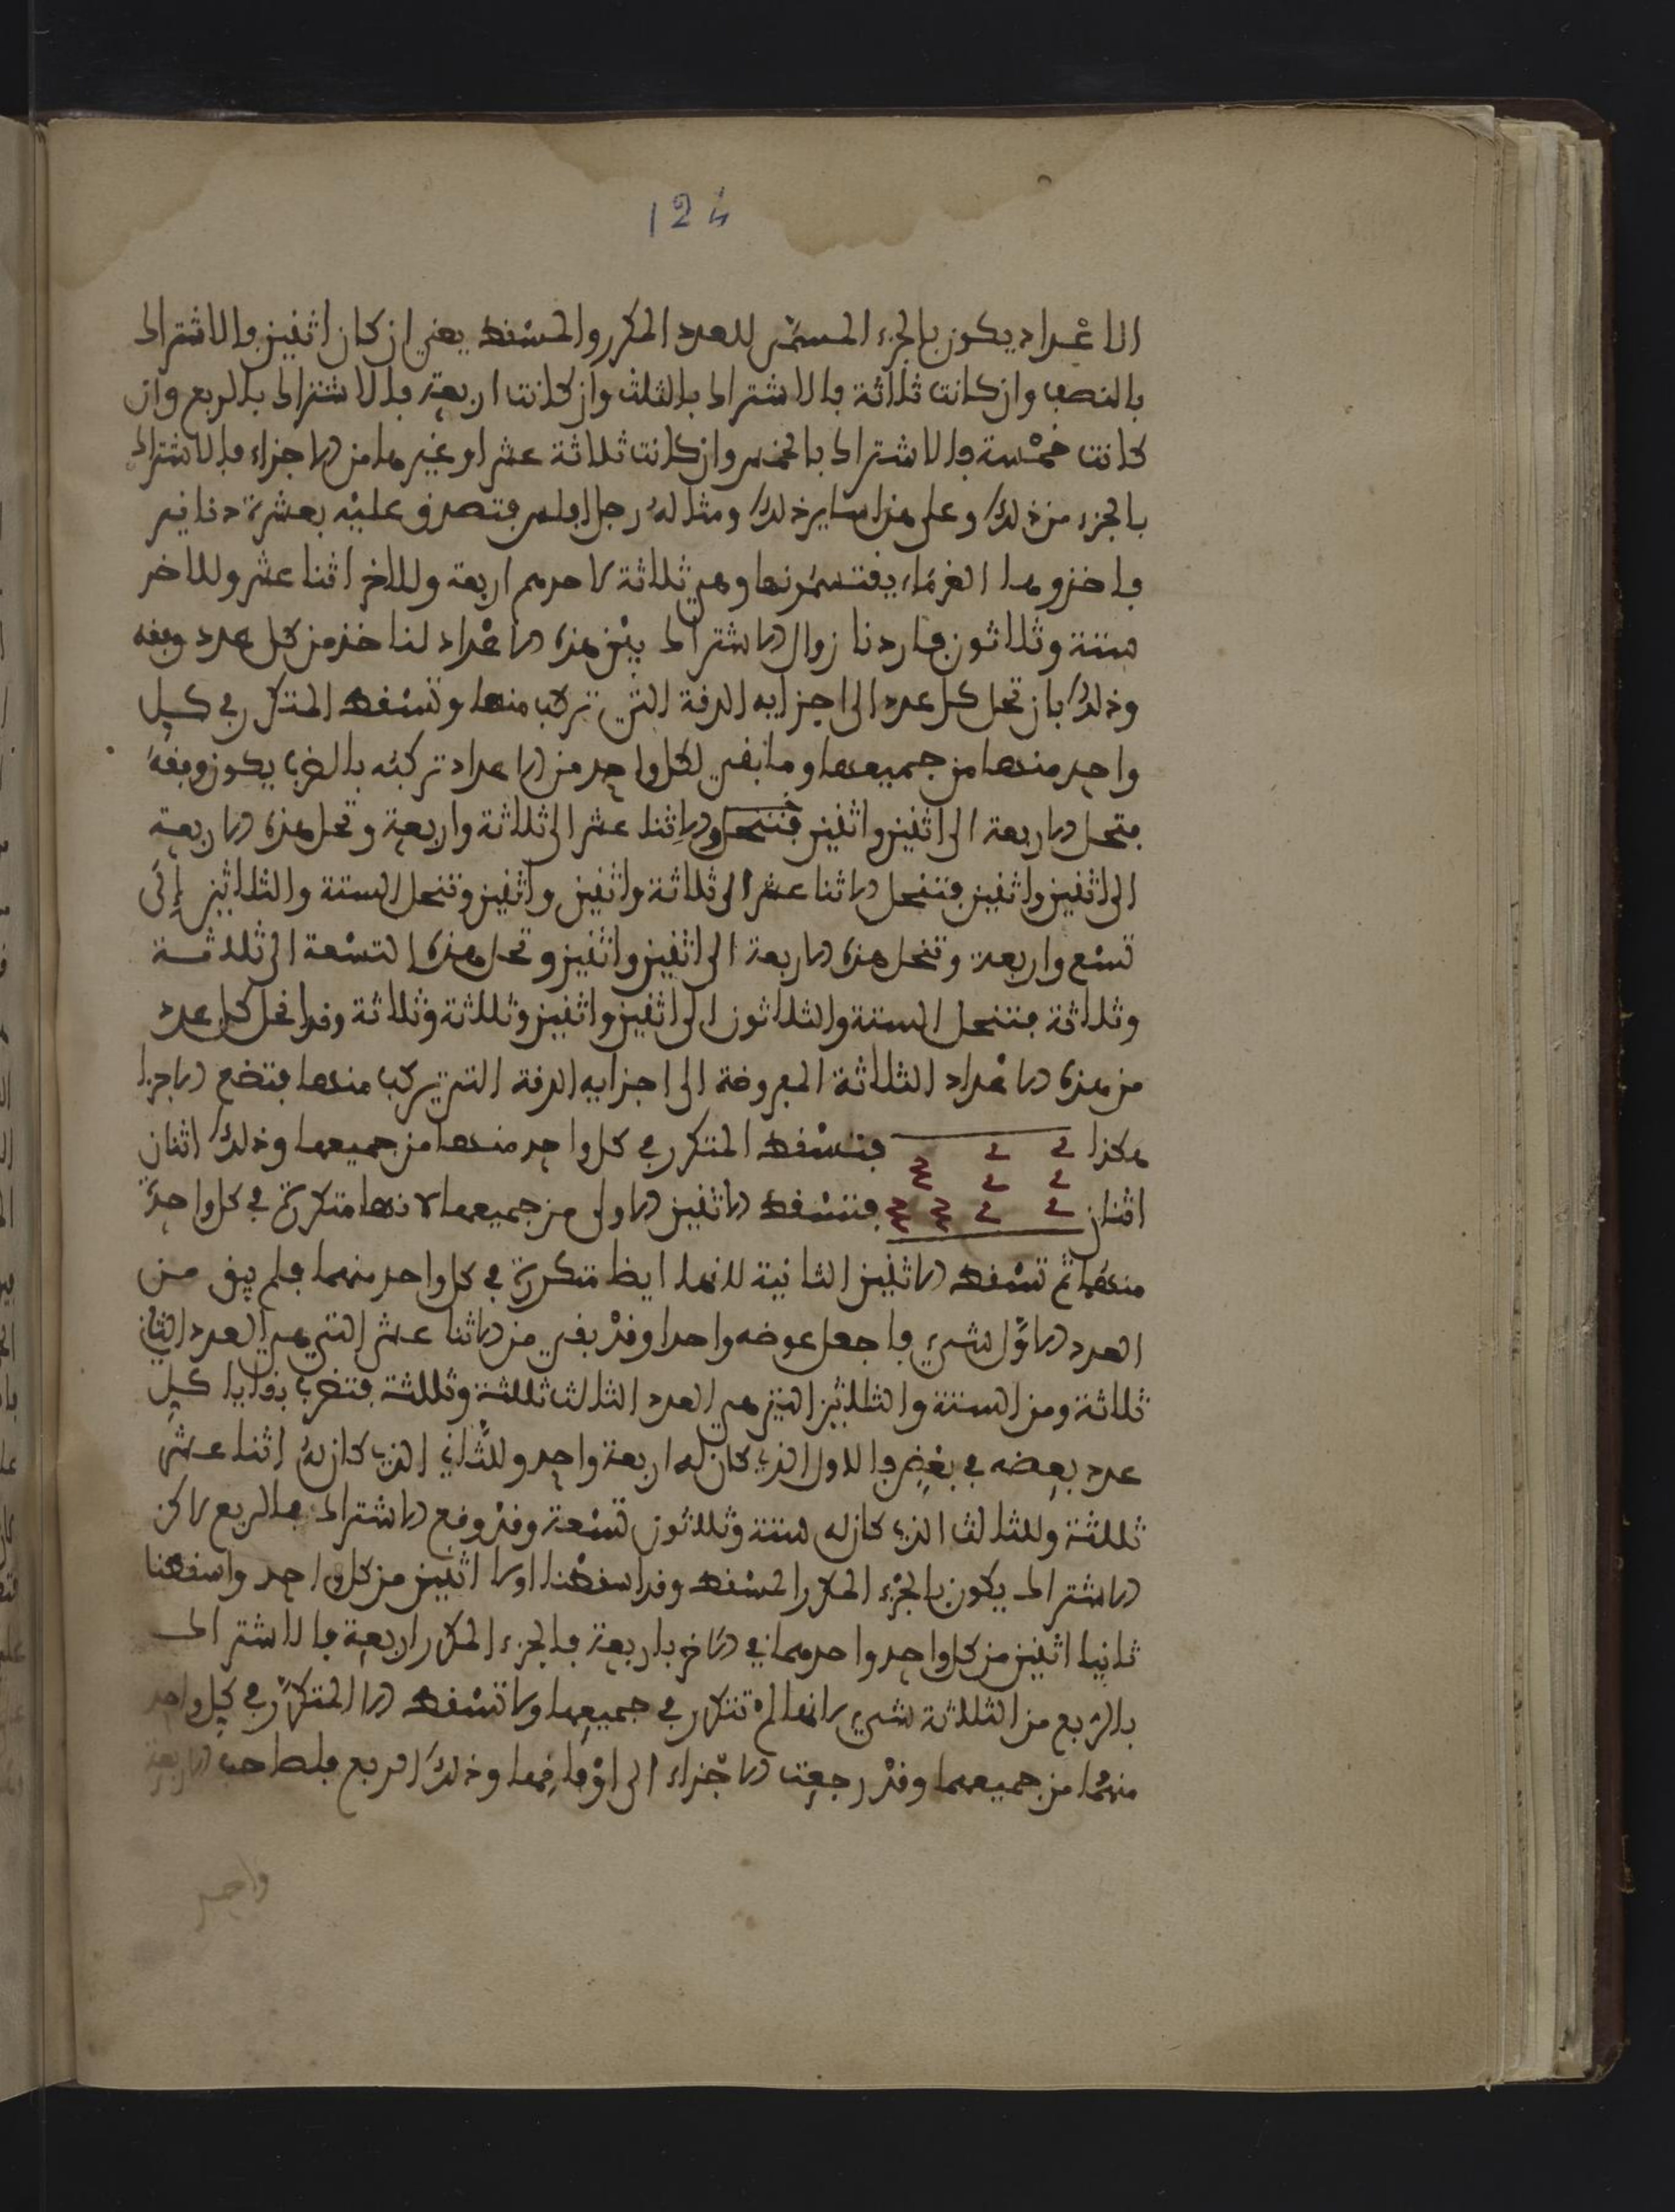 124
الاعداد يكون بالجزء المسمى للعدد المكرر والمسقط يعني ان كان اثنين فالاشتراك
بالنصف وان كانت ثلاثة فالاشتراك بالثلث وان كانت اربعة فالاشتراك بالربع وان
كانت خمسة فالاشتراك بالخمس وان كانت ثلاثة عشر او غيرها من الاجزاء فالاشتراك
بالجزء من ذلك وعلى هذا ساير ذلك ومثاله رجل افلس فتصدق عليه بعشرة دنانير
فاخذوها الغرماء يقتسمونها وهي ثلاثة لاحدهم اربعة وللاخر اثنا عشر وللاخر
ستة وثلاثون فاردنا زوال الاشتراك بين هذه الاعداد لناخذ من كل عدد وفقه
وذلك بان تحل كل عدد الى اجزايه الدقة التي تركب منها وتسقط المتكرر في كل
واحد منها من جميعها وما بقي لكل واحد من الاعداد تركبه بالضرب يكون وفقه
فتحل الاربعة الى اثنين واثنين فتنحل والاثنا عشر الى ثلاثة واربعة وتحل هذه الاربعة
الى اثنين واثنين فتنحل الاثنا عشر الى ثلاثة واثنين واثنين وتنحل الستة والثلاثين إلى
تسع واربعة وتنحل هذه الاربعة الى اثنين واثنين وتحل هذه التسعة الى ثلاثة
وثلاثة فتنحل الستة والثلاثون الى اثنين واثنين وثلاثة وثلاثة وقد انحل كل عدد
من هذه الاعداد الثلاثة المفروضة الى اجزايه الدقة التي تركب منها فتضع الاجزا
هكذا 2 2 2 3 فتسقط المتكرر في كل واحد منها من جميعها وذلك اثنان
اثنان 2 2 3 3 فتسقط الاثنين الاولى من جميعها لانها متكررة في كل واحد
منها ثم تسقط الاثنين الثانية لانها ايظا متكررة في كل واحد منهما فلم يبق من
العدد الاول شيء فاجعل عوضه واحدا وقد بقي من الاثنا عشر التي هي العدد الثاني
ثلاثة ومن الستة والثلاثين التي هي العدد الثالث ثلاثة وثلاثة فتضرب بقايا كل
عدد بعضه في بعض فالاول الذي كان له اربعة واحد وللثاني الذي كان له اثنا عشر
ثلاثة وللثالث الذي كان له ستة وثلاثون تسعة وقد وقع الاشتراك بالربع لاكن
الاشتراك يكون بالجزء المكرر المسقط وقد اسقطنا اولا اثنين من كل واحد واسقطنا
ثانيا اثنين من كل واحد واحدهما في الاخر باربعة فالجزء المكرر اربعة فالاشتراك
بالربع من الثلاثة شيء لانها لم تتكرر في جميعها ولا تسقط الا المتكرر في كل واحد
منهما من جميعهما وقد رجعت الاجزاء الى اوفاقها وذلك الربع فلصاحب الاربعة
واحد